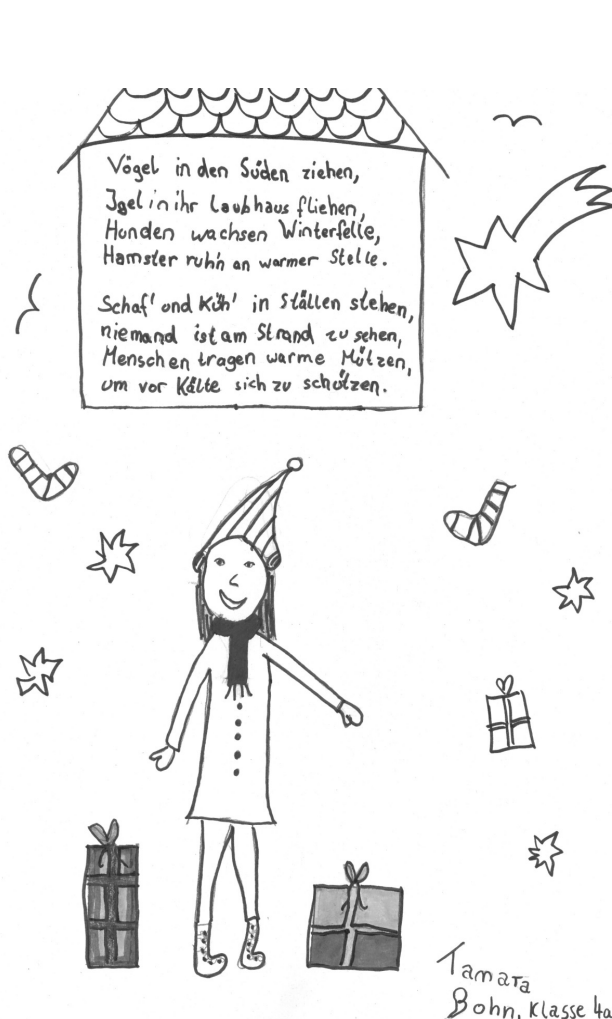 Vögel in den Süden ziehen,
Igel in ihr Laubhaus fliehen,
Hunden wachsen Winterfelle,
Hamster ruh'n an warmer Stelle.
Schaf' und Küh' in Ställen stehen,
niemand ist am Strand zu sehen,
Menschen tragen warme Mützen,
um vor Kälte sich zu schützen.
Tamara
Bohn, Klasse 4a